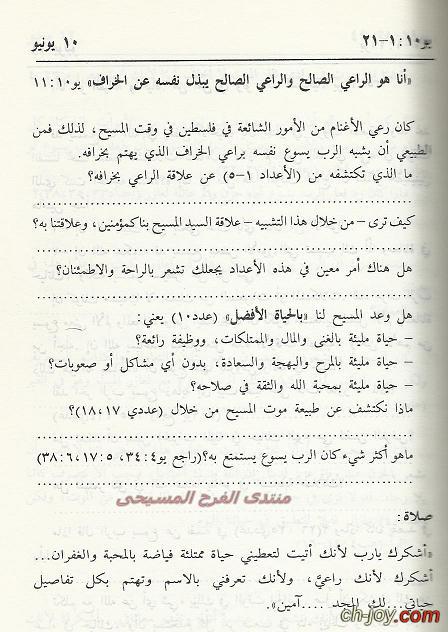 يو١٠:١-٢١
١٠ يونيو
«أنا هو الراعي الصالح والراعي الصالح يبذل نفسه عن الخراف» يو١٠:١١
كان رعي الأغنام من الأمور الشائعة في فلسطين في وقت المسيح، لذلك فمن
الطبيعي أن يشبه الرب يسوع نفسه براعي الخراف الذي يهتم بخرافه.
ما الذي تكتشفه من (الأعداد ١-٥) عن علاقة الراعي بخرافه؟
كيف ترى - من خلال هذا التشبيه - علاقة السيد المسيح بنا كمؤمنين، وعلاقتنا به؟
هل هناك أمر معين في هذه الأعداد يجعلك تشعر بالراحة والاطمئنان؟
هل وعد المسيح لنا «بالحياة الأفضل» (عدد١٠) يعني:
- حياة مليئة بالغنى والمال والممتلكات، ووظيفة رائعة؟
- حياة مليئة بالمرح والبهجة والسعادة، بدون أي مشاكل أو صعوبات؟
- حياة مليئة بمحبة الله والثقة في صلاحه؟
ماذا نكتشف عن طبيعة موت المسيح من خلال (عددي ١٧، ١٨)؟
ماهو أكثر شيء كان الرب يسوع يستمتع به؟(راجع يو٤:٣٤، ٥:١٧، ٦:٣٨)
منتدى الفرح المسيحى
صلاة:
«أشكرك يارب لأنك أتيت لتعطيني حياة ممتلئة فياضة بالمحبة والغفران...
أشكرك لأنك راعيَّ، ولأنك تعرفني بالاسم وتهتم بكل تفاصيل
حياتي...لك المجد ....آمين».
ch-joy.com